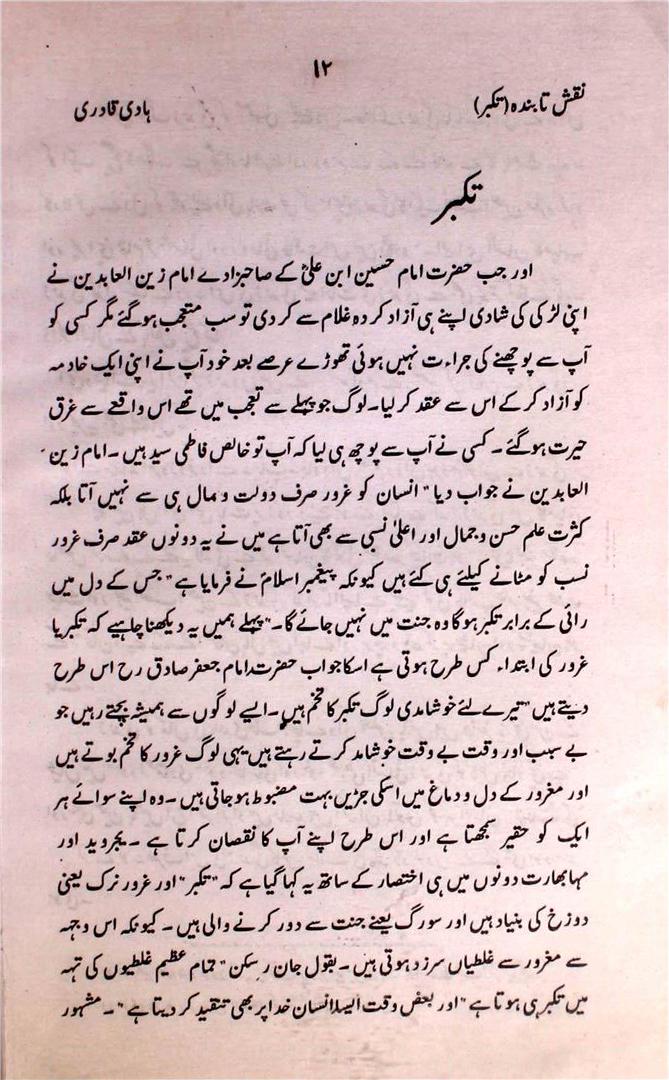 ۱۲
نقش تابندہ (تکبر)
ہادی قادری
تکبر
اور جب حضرت امام حسین ابن علیؓ کے صاحبزادے امام زین العابدین نے
اپنی لڑکی کی شادی اپنے ہی آزاد کردہ غلام سے کر دی تو سب متعجب ہوگئے مگر کسی کو
آپ سے پوچھنے کی جراءت نہیں ہوئی تھوڑے عرصے بعد خود آپ نے اپنی ایک خادمہ
کو آزاد کر کے اس سے عقد کر لیا۔ لوگ جو پہلے سے تعجب میں تھے اس واقعے سے غرق
حیرت ہوگئے۔ کسی نے آپ سے پوچھ ہی لیا کہ آپ تو خالص فاطمی سید ہیں۔ امام زین
العابدین نے جواب دیا " انسان کو غرور صرف دولت و مال ہی سے نہیں آتا بلکہ
کثرت علم حسن و جمال اور اعلیٰ نسبی سے بھی آتا ہے میں نے یہ دونوں عقد صرف غرور
نسب کو مٹانے کیلئے ہی کئے ہیں کیونکہ پیغمبر اسلامؐ نے فرمایا ہے " جس کے دل میں
رائی کے برابر تکبر ہوگا وہ جنت میں نہیں جائے گا۔" پہلے ہمیں یہ دیکھنا چاہیے کہ تکبر یا
غرور کی ابتداء کس طرح ہوتی ہے اسکا جواب حضرت امام جعفر صادق رح اس طرح
دیتے ہیں " تیرے لئے خوشامدی لوگ تکبر کا تخم ہیں۔ ایسے لوگوں سے ہمیشہ بچتے رہیں جو
بے سبب اور وقت بے وقت خوشامد کرتے رہتے ہیں یہی لوگ غرور کا تخم بوتے ہیں
اور مغرور کے دل و دماغ میں اسکی جڑیں بہت مضبوط ہوجاتی ہیں۔ وہ اپنے سوائے ہر
ایک کو حقیر سمجھتا ہے اور اس طرح اپنے آپ کا نقصان کرتا ہے۔ یجروید اور
مہابھارت دونوں میں ہی اختصار کے ساتھ یہ کہا گیا ہے کہ " تکبر " اور غرور نرک یعنی
دوزخ کی بنیاد ہیں اور سورگ یعنے جنت سے دور کرنے والی ہیں۔ کیونکہ اس وجہہ
سے مغرور سے غلطیاں سرزد ہوتی ہیں۔ بقول جان رسکن " تمام عظیم غلطیوں کی تہہ
میں تکبر ہی ہوتا ہے " اور بعض وقت ایسا انسان خدا پر بھی تنقید کر دیتا ہے "۔ مشہور